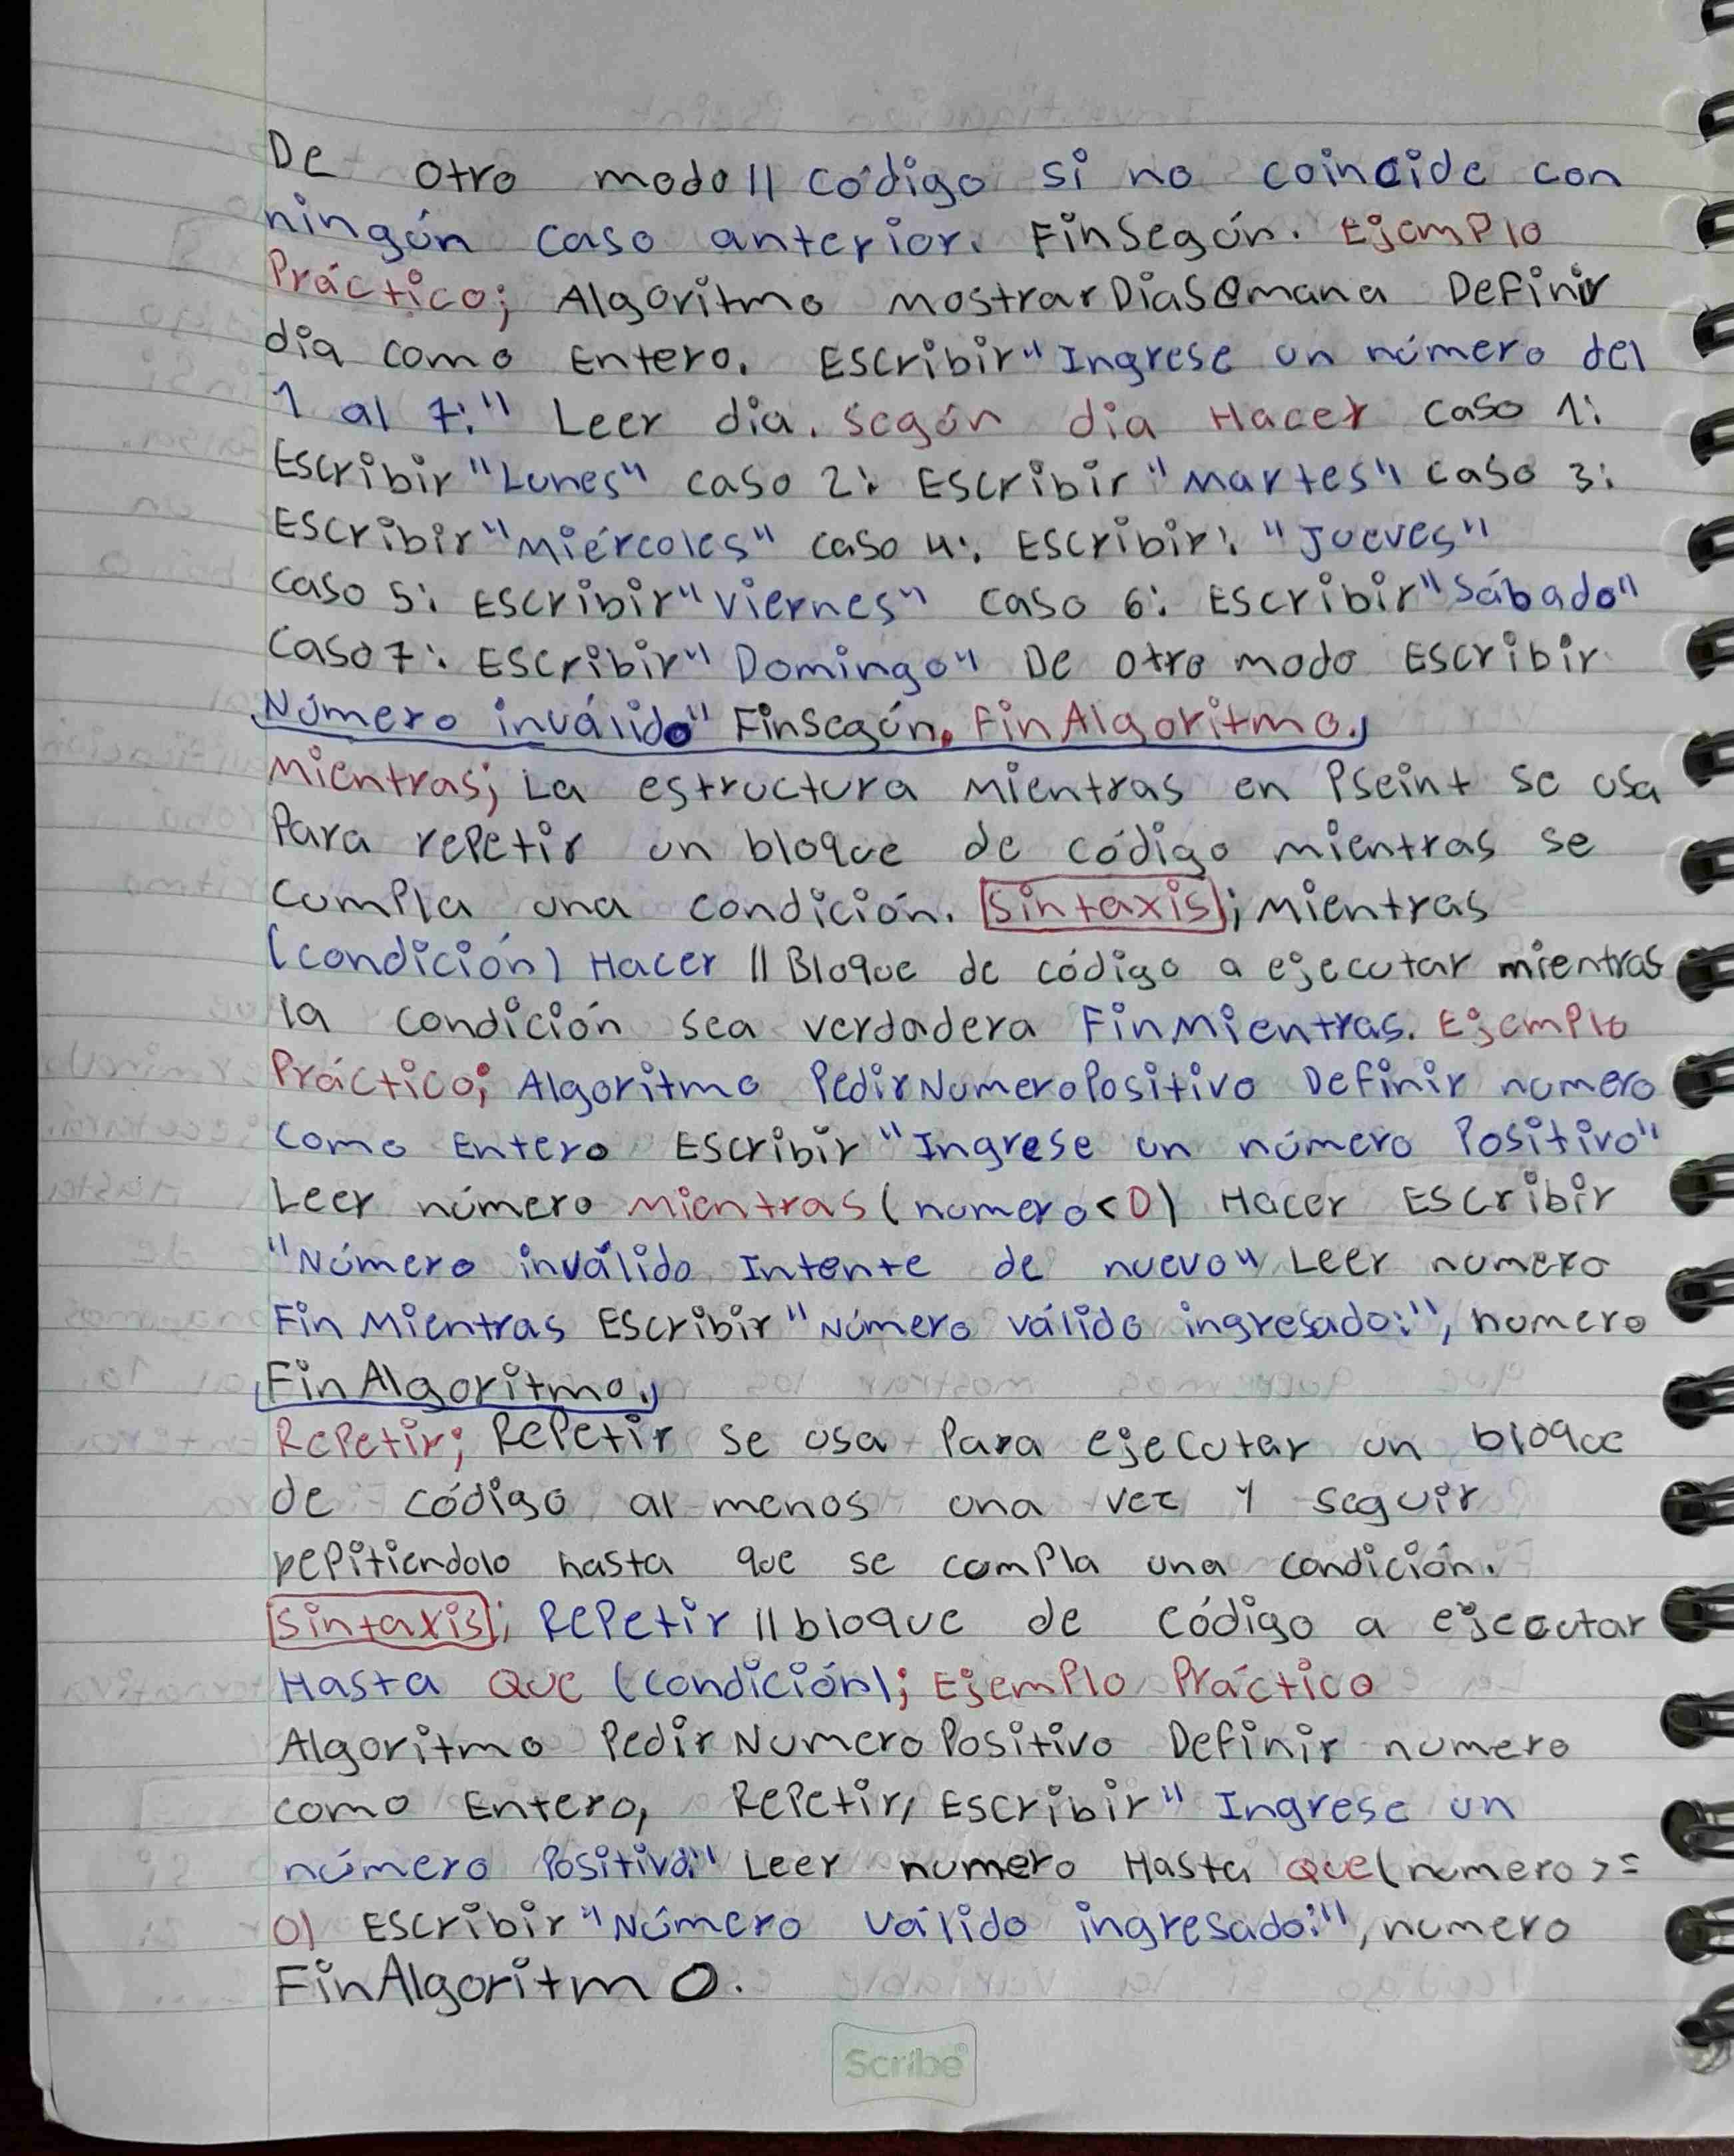 De otro modo // código si no coincide con
ningún caso anterior. FinSegún. Ejemplo
Práctico; Algoritmo mostrarDiaSemana Definir
dia como Entero. Escribir "Ingrese un número del
1 al 7:" Leer dia. Según dia Hacer caso 1:
Escribir "Lunes" caso 2: Escribir "Martes" caso 3:
Escribir "Miércoles" caso 4: Escribir: "Jueves"
caso 5: Escribir "Viernes" caso 6: Escribir "Sábado"
Caso 7: Escribir "Domingo" De otro modo Escribir
Número inválido" FinSegún. FinAlgoritmo.
Mientras; La estructura Mientras en Pseint se usa
Para repetir un bloque de código mientras se
cumpla una condición. Sintaxis; Mientras
(condición) Hacer // Bloque de código a ejecutar mientras
la condición sea verdadera FinMientras. Ejemplo
Práctico; Algoritmo PedirNumeroPositivo Definir numero
como Entero Escribir "Ingrese un número Positivo"
Leer número Mientras (numero < 0) Hacer Escribir
"Número inválido Intente de nuevo" Leer numero
Fin Mientras Escribir "Número válido ingresado:", numero
FinAlgoritmo.
Repetir; Repetir se usa Para ejecutar un bloque
de código al menos una vez y seguir
repitiendolo hasta que se compla una condición.
Sintaxis; Repetir // bloque de código a ejecutar
Hasta Que (condición); Ejemplo Práctico
Algoritmo PedirNumeroPositivo Definir numero
como Entero, Repetir, Escribir "Ingrese un
número Positivo:" Leer numero Hasta Que (numero >=
0) Escribir "Número válido ingresado:", numero
FinAlgoritmo.
Scribe